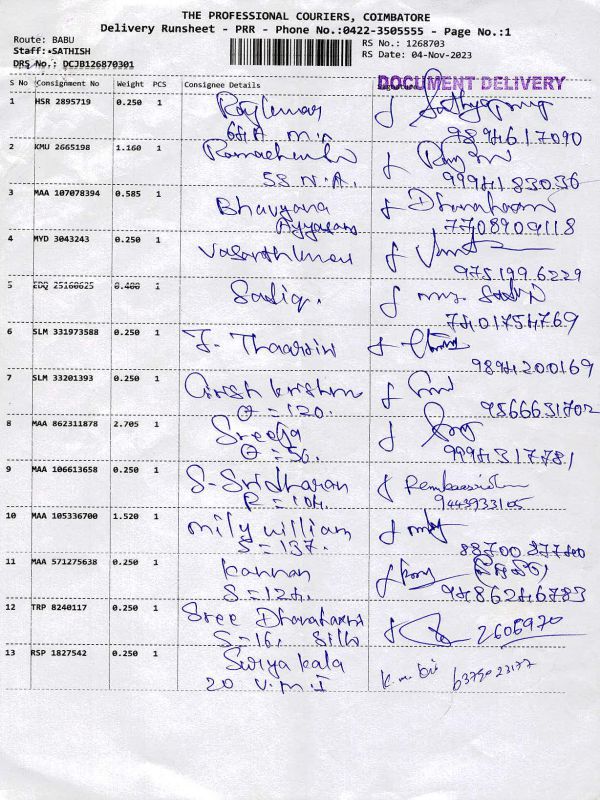 THE PROFESSIONAL COURIERS, COIMBATORE
Delivery Runsheet - PRR - Phone No.:0422-3505555 - Page No.:1
Route: BABU
Staff: SATHISH
DRS No.: DCJB126870301
RS No.: 1268703
RS Date: 04-Nov-2023
DOCUMENT DELIVERY
S No Consignment No Weight PCS Consignee Details
1 HSR 2895719 0.250 1 Rajkumar
9894617090
2 KMU 2665198 1.160 1
58 N.A. 9994183036
3 MAA 107078394 0.585 1 Bhavyana Dhanalaxmi
Ayyasamy 7708909118
4 MYD 3043243 0.250 1 Vasanthkumar
9751996229
5 EDQ 25160625 0.400 1 Sadiq.
7401754769
6 SLM 331973588 0.250 1 J. Thaarsini
9894200169
7 SLM 33201393 0.250 1 Girish krishna
O = 120. 9566631702
8 MAA 862311878 2.705 1 Sreeja
O = 56. 9994317781
9 MAA 106613658 0.250 1 S-Sridharan
R = 104. 9443933105
10 MAA 105336700 1.520 1 mily william
S = 137. 8870037740
11 MAA 571275638 0.250 1 Kannan
S = 124. 9486246783
12 TRP 8240117 0.250 1 Sree Dhanalaxmi
S = 16. Silk 2606970
13 RSP 1827542 0.250 1 Surya kala
20 V.M.I 6379023177